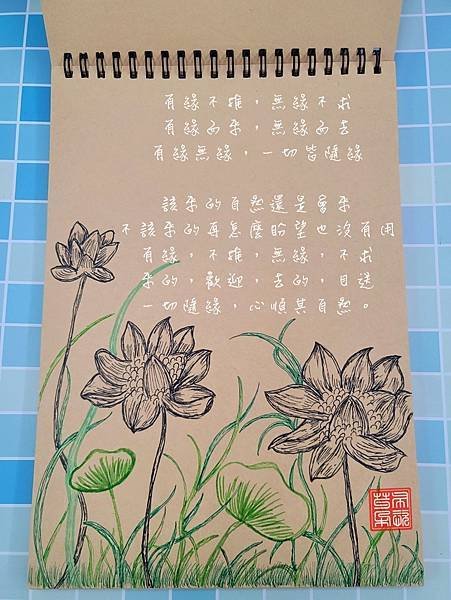 有緣不推，無緣不求
有緣而來，無緣而去
有緣無緣，一切皆隨緣
該來的自然還是會來
不該來的再怎麼盼望也沒有用
有緣，不推，無緣，不求
來的，歡迎，去的，目送
一切隨緣，心順其自然。